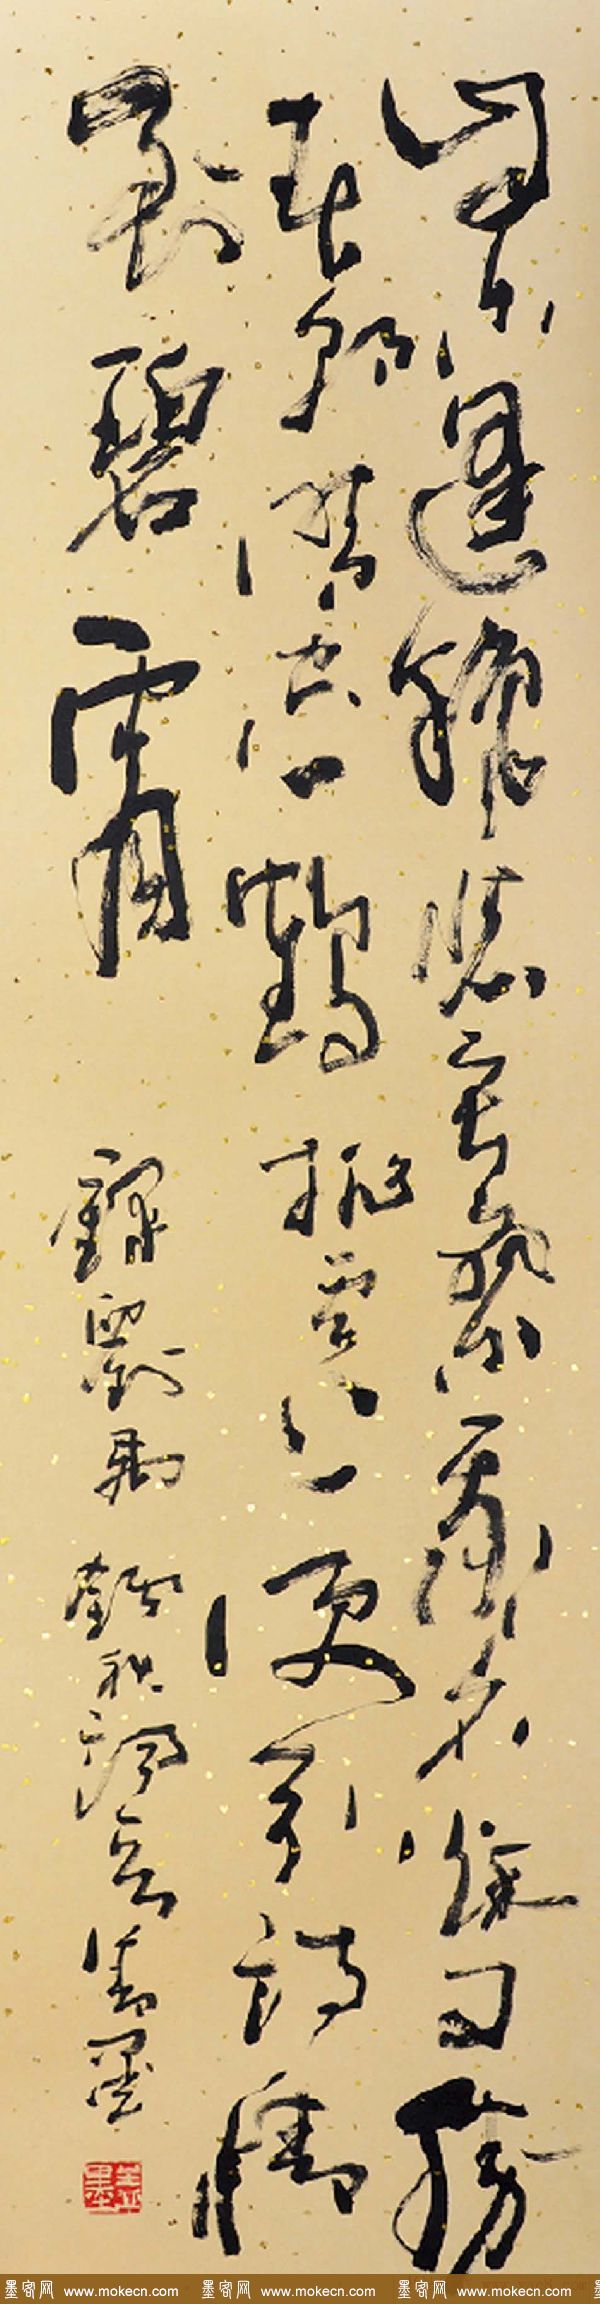 自古逢秋悲寂寥我言秋日勝
春朝晴空一鶴排雲上便引詩情
到碧霄
錄劉禹錫秋詞
墨客网 www.mokecn.com 墨客网 www.mokecn.com 墨客网 www.mokecn.com